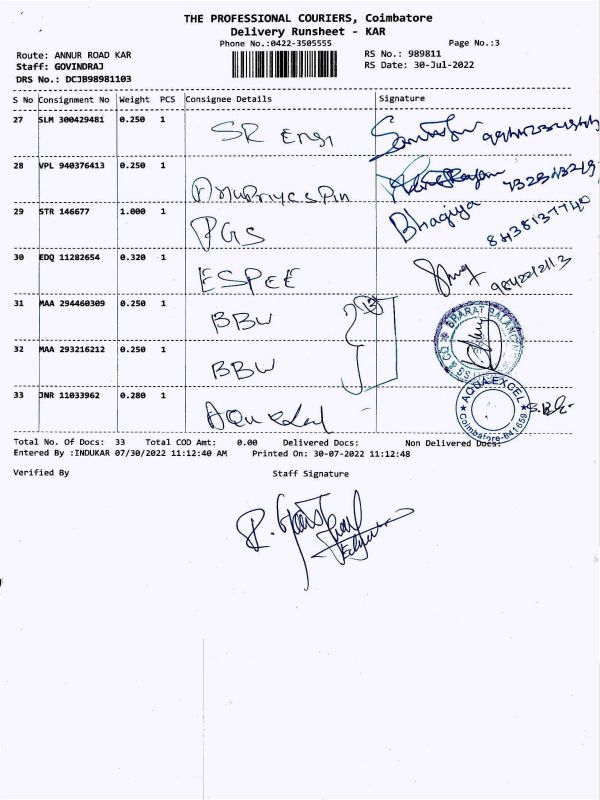 THE PROFESSIONAL COURIERS, Coimbatore
Delivery Runsheet - KAR
Phone No.:0422-3505555
Page No.:3
Route: ANNUR ROAD KAR
RS No.: 989811
Staff: GOVINDRAJ
RS Date: 30-Jul-2022
DRS No.: DCJB98981103
S No Consignment No Weight PCS Consignee Details Signature
27 SLM 300429481 0.250 1 SR Engi
28 VPL 940376413 0.250 1
29 STR 146677 1.000 1 PGS Bhagiya
30 EDQ 11282654 0.320 1 ESPEE
31 MAA 294460309 0.250 1 BBW 13 BHARAT BALANCING
32 MAA 293216212 0.250 1 BBW
33 JNR 11033962 0.280 1 AQUA EXCEL Coimbatore-641659
Total No. Of Docs: 33 Total COD Amt: 0.00 Delivered Docs: Non Delivered Docs:
Entered By :INDUKAR 07/30/2022 11:12:40 AM Printed On: 30-07-2022 11:12:48
Verified By Staff Signature